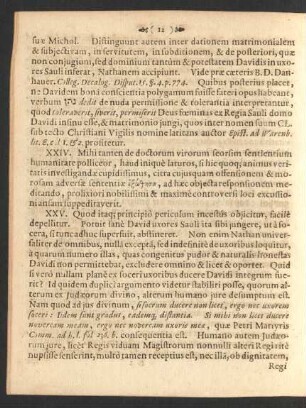 (12)
suæ Michol. Distinguunt autem inter dationem matrimonialem
& subjectivam, in servitutem, in subditionem, & de posteriori, quæ
non conjugium, sed dominium tantùm & potestatem Davidis in uxo-
res Sauli inferat, Nathanem accipiunt. Vide præ cæteris B. D. Dan-
hauer. Colleg. Decalog. Disput. VI. §. 4. p. 774. Quibus posterius placet,
ne Davidem bona conscientia polygamum fuisse fateri opus habeant,
verbum נתן dedit de nuda permissione & tolerantia interpretantur,
quod toleraverit, siverit, permiserit Deus fœminas ex Regia Sauli domo
Davidi in sinu esse, & matrimonio jungi, quos inter nomen suum CL.
sub tecto Christiani Vigilis nomine latitans auctor Epist. ad
lit. E. 2. & prositetur.
XXIV. Mihi tamen de doctorum virorum seorsim sentientium
humanitate polliceor, haud iniquè laturos, si hic quoq; animus veri-
tatis investigandæ cupidissimus, citra cujusquam offensionem & mo-
rosam adversæ sententiæ ad hæc objecta responsionem me-
ditando, prolixiori nobilissimi & maximè controversi loci excussio-
ni ansam suppeditaverit.
XXV. Quod itaq; principiò periculum incestûs objicitur, facilè
depellitur. Poruit sanè David uxores Sauli ita sibi jungere, ut à so-
cera, si tunc adhuc superfuit, abstineret. Non enim Nathan univer-
saliter de omnibus, nulla exceptâ, sed indefinitè de uxoribus loquitur,
à quarum numero illas, quas congenitus pudor & naturalis honestas
Davidi non permittebat, excludere omnino & licet & oportet. Quid
si verò nullam planè ex soceri uxoribus ducere Davidi integrum fue-
rit? Id quidem duplici argumento videtur stabiliri posse, quorum al-
terum ex Judæorum divino, alterum humano jure desumptum est.
Nam quod ad jus divinum, si socrum ducere non licet, ergo nec uxorem
soceri: Iidem sunt gradus, eademq; distantia. Si mihi non licet ducere
novercam meam, ergo nec novercam uxoris meæ, quæ Petri Martyris
Comm. ad h. l. fol. 238. b. consequentia est. Humano autem Judæo-
rum jure, licet Regis viduam Magistrorum nonnulli alteri Regi ritè
nupsisse senserint, multò tamen receptius est, nec illâ, ob dignitatem,
Regi